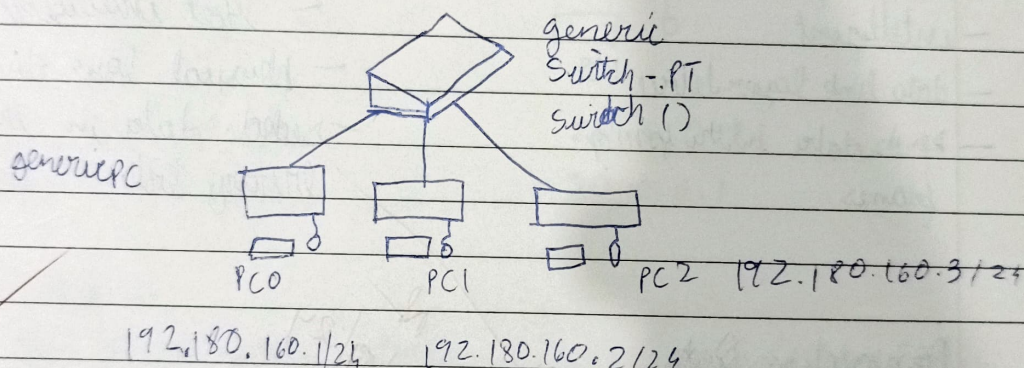 generic
Switch-PT
Switch ()
genericPC
PC0
PC1
PC2 192.180.160.3/24
192.180.160.1/24 192.180.160.2/24